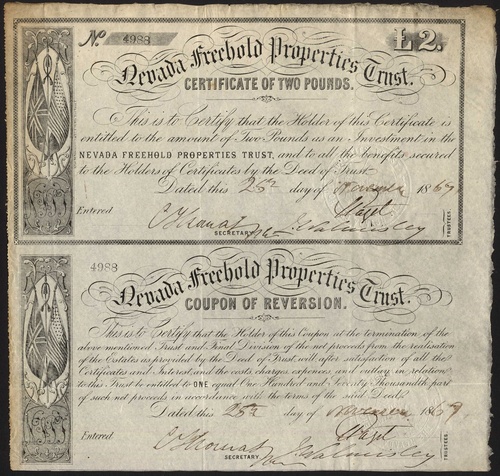 No. 4988
£2.
Nevada Freehold Properties Trust.
CERTIFICATE OF TWO POUNDS.
This is to Certify that the Holder of this Certificate is
entitled to the amount of Two Pounds as an Investment in the
NEVADA FREEHOLD PROPERTIES TRUST, and to all the benefits secured
to the Holders of Certificates by the Deed of Trust.
Dated this 25th day of November 1869
Entered
SECRETARY
TRUSTEES
4988
Nevada Freehold Properties Trust.
COUPON OF REVERSION.
This is to Certify that the Holder of this Coupon at the termination of the
above mentioned Trust and Final Division of the net proceeds from the realisation
of the Estates as provided by the Deed of Trust, will after satisfaction of all the
Certificates and Interest, and the costs, charges, expences and outlay in relation
to this Trust be entitled to ONE equal One Hundred and Seventy Thousandth part
of such net proceeds in accordance with the terms of the said Deed.
Dated this 25th day of November 1869
Entered
SECRETARY
TRUSTEES